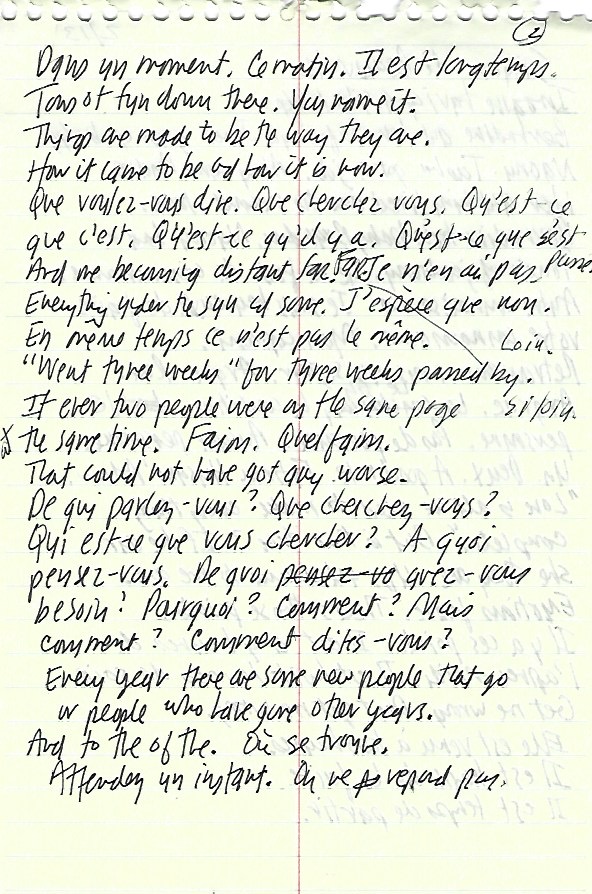 2
Dans un moment. Ce matin. Il est longtemps.
Tons of fun down there. You name it.
Things are made to be the way they are.
How it came to be and how it is now.
Que voulez-vous dire. Que cherchez vous. Qu'est-ce
que c'est. Qu'est-ce qu'il y a. Qu'est-ce que s'est
passé
And me becoming distant far. FAR Je n'en ai pas
Everything under the sun and some. J'espère que non.
En même temps ce n'est pas le même. Loin.
"Went three weeks" for three weeks passed by.
If ever two people were on the same page si loin.
at the same time. Faim. Quel faim.
That could not have got any worse.
De qui parlez-vous? Que cherchez-vous?
Qui est-ce que vous chercher? A quoi
pensez-vous. De quoi pensez-vo avez-vous
besoin? Pourquoi? Comment? Mais
comment? Comment dites-vous?
Every year there are some new people that go
or people who have gone other years.
And to the of the. Où se trouve.
Attendez un instant. On ne repond pas.